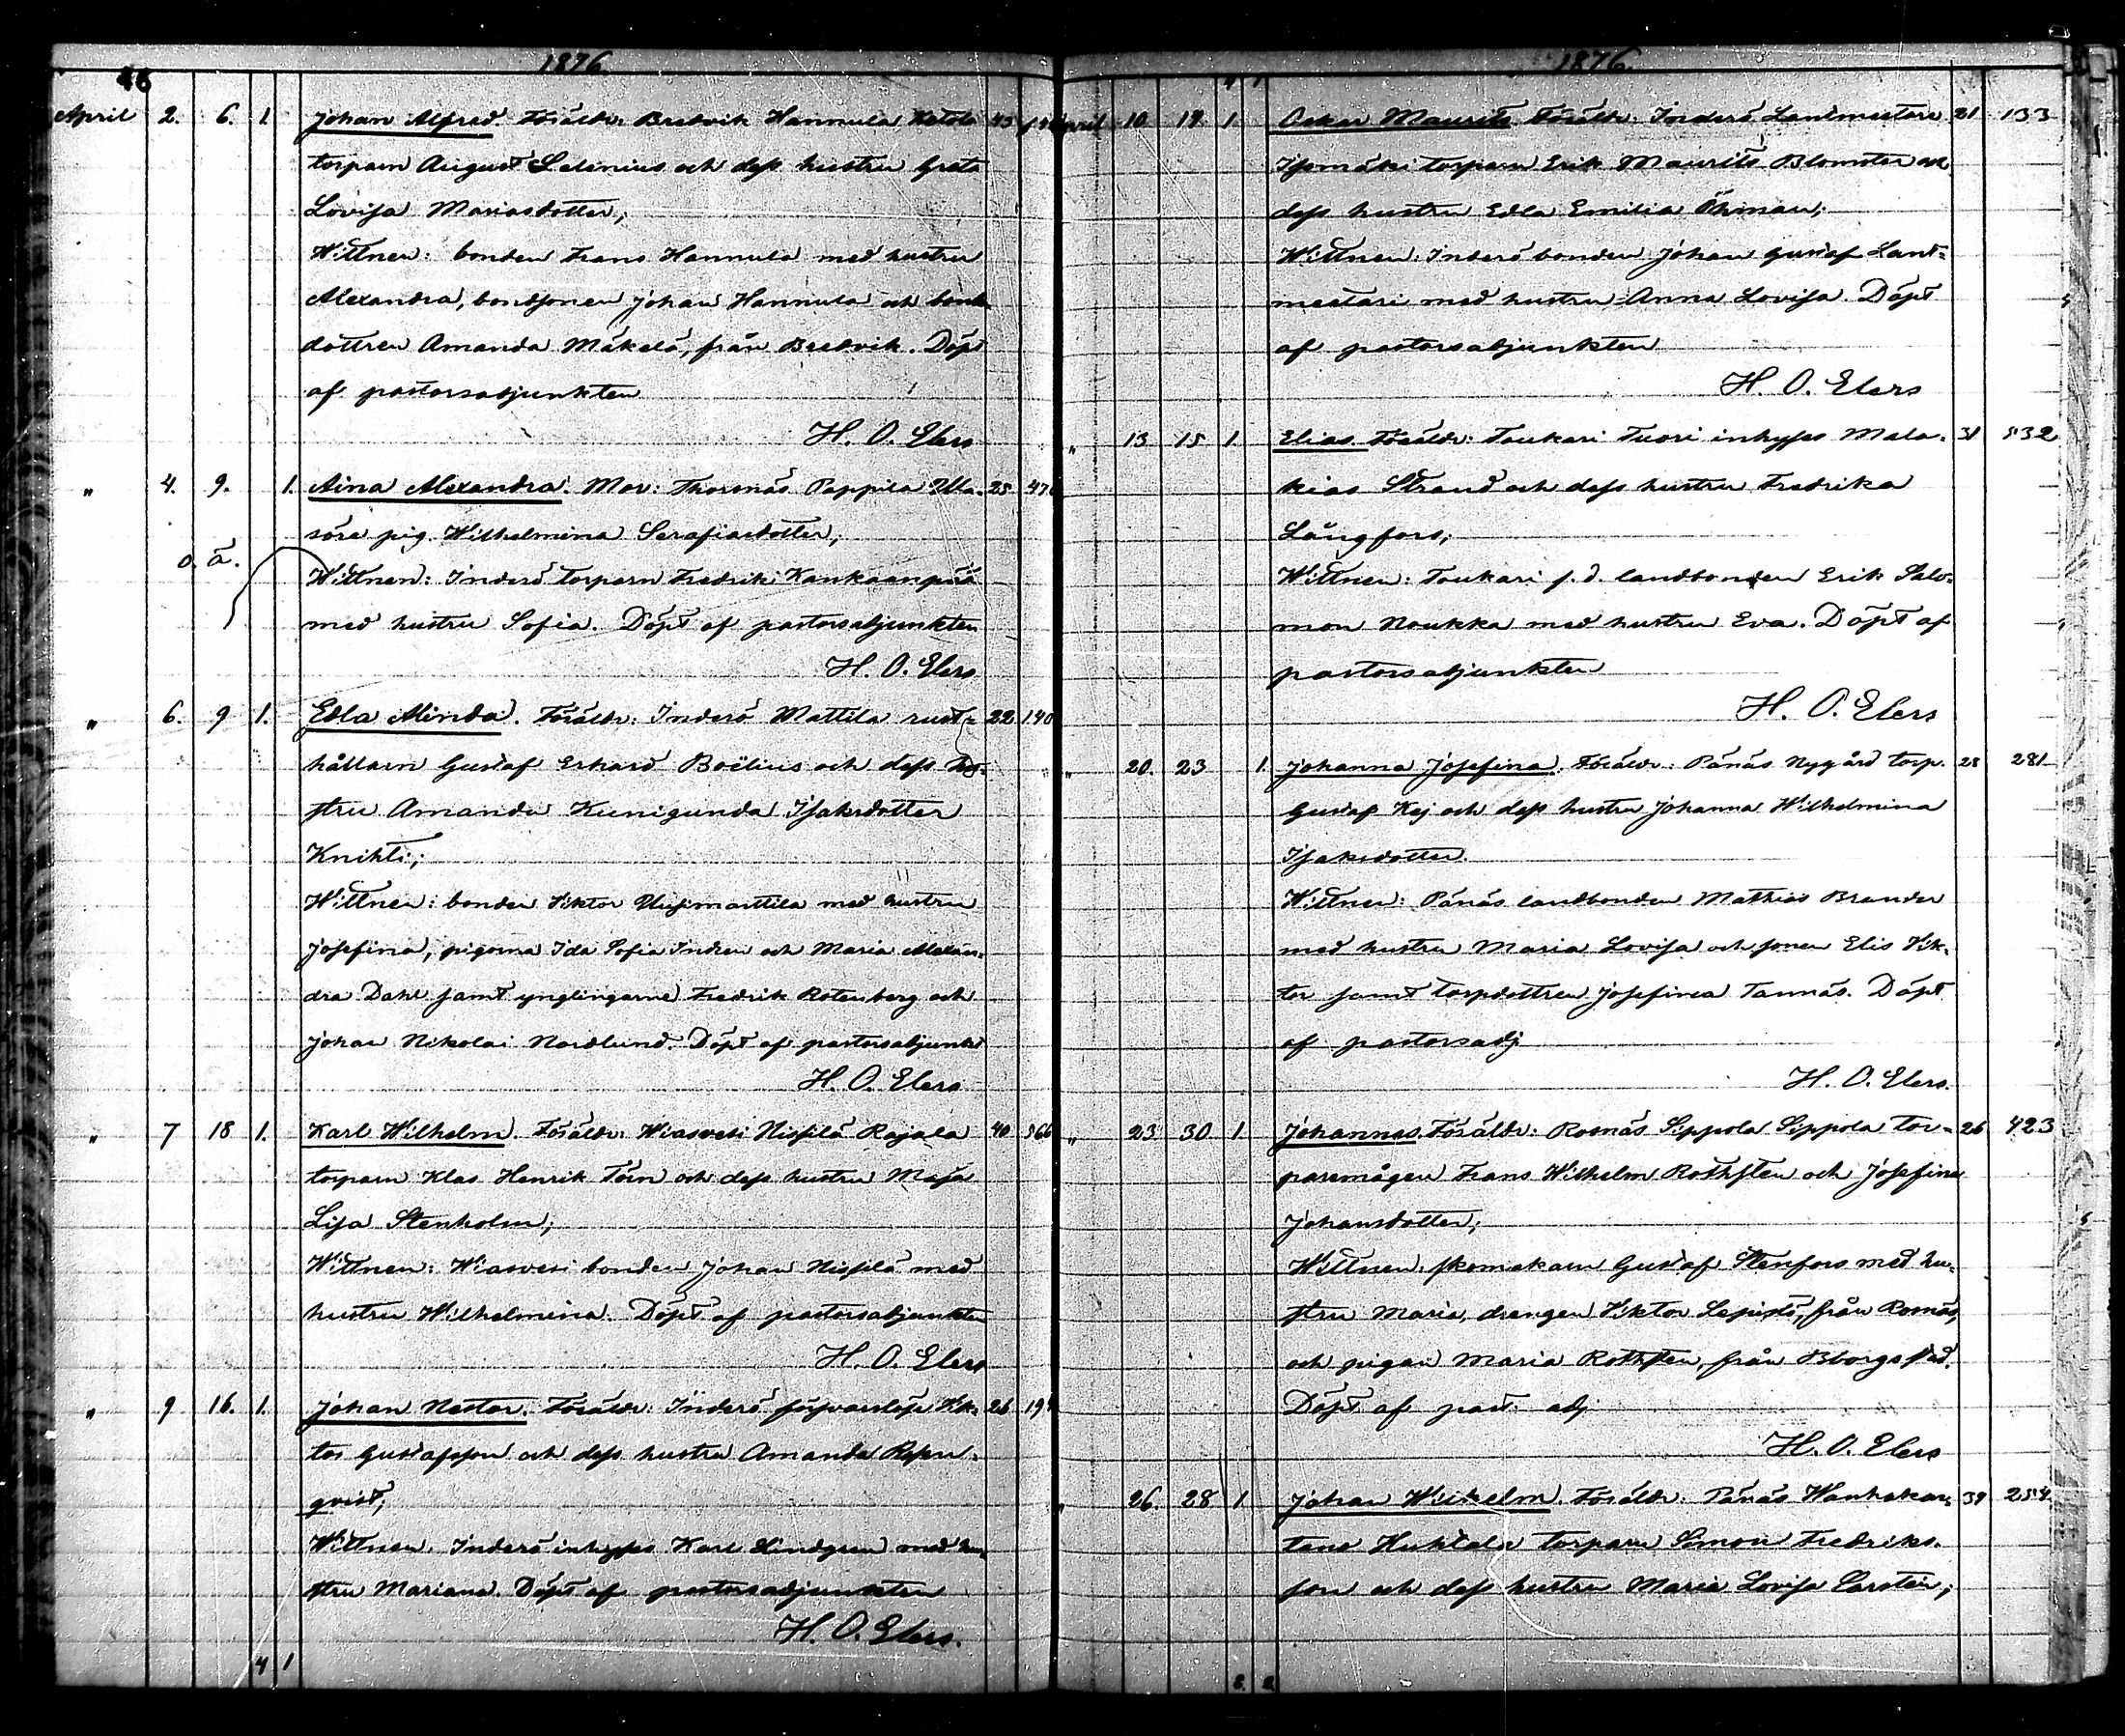 1876.
46
April 2. 6. 1. Johan Alfred. Föräldr: Bredvik Hannula Ketola 43
torparn August Selenius och dess hustru Greta
Lovisa Mariasdotter;
Wittnen: bonden Frans Hannula med hustru
Alexandra, bondsonen Johan Hannula och bonde
dottren Amanda Mäkelä, från Bredvik. Döpt
af pastorsadjunkten
H. O. Elers
" 4. 9. 1. Aina Alexandra. Mor: Thorsnäs Pappila Ula- 25 47
söre pig. Wilhelmina Serafiasdotter;
o. ä.
Wittnen: Inderö torparn Fredrik Kankaanpää
med hustru Sofia. Döpt af pastorsadjunkten
H. O. Elers
" 6. 9 1. Edla Minda. Föräldr: Inderö Mattila rust- 22 140
hållarn Gustaf Erhard Boëlius och dess hu-
stru Amanda Kunigunda Isaksdotter
Knihti;
Wittnen: bonden Viktor Uusimarttila med hustru
Josefina, pigorna Ida Sofia Indren och Maria Alexan-
dra Dahl samt ynglingarne Fredrik Rotenberg och
Johan Nikolai Nordlund. Döpt af pastorsadjunkt
H. O. Elers
" 7 18 1. Karl Wilhelm. Föräldr: Wiasvesi Nissilä Rajala 40 566
torparn Klas Henrik Törn och dess hustru Maja
Lisa Stenholm;
Wittnen: Wiasvesi bonden Johan Nissilä med
hustru Wilhelmina. Döpt af pastorsadjunkten
H. O. Elers
" 9 16. 1. Johan Nestor. Föräldr: Inderö försvarslöse Vik- 26 19
tor Gustafsson och dess hustru Amanda
qvist;
Wittnen: Inderö inhyses Karl Lindgren med hu-
stru Mariana. Döpt af pastorsadjunkten
H. O. Elers.
4 1
1876.
4 1
April 10 17 1. Oskar Maurits Föräldr: Inderö Lantmestare 21 133
Isomäki torparn Erik Maurits Blomster och
dess hustru Edla Emilia Öhman;
Wittnen: Inderö bonden Johan Gustaf Lant-
mestari med hustru Anna Lovisa. Döpt
af pastorsadjunkten
H. O. Elers
" 13 15 1. Elias Föräldr: Toukari Tuori inhyses Mala- 31 532
kias Strand och dess hustru Fredrika
Långfors;
Wittnen: Toukari f. d. landbonden Erik Salo-
mon Noukka med hustru Eva. Döpt af
pastorsadjunkten
H. O. Elers
" 20. 23 1. Johanna Josefina. Föräldr: Pänäs Nygård torp. 28 281
Gustaf Kej och dess hustru Johanna Wilhelmina
Isaksdotter.
Wittnen: Pänäs landbonden Mathias Brander
med hustru Maria Lovisa och sonen Elis Vik-
tor samt torpdottren Josefina Tannäs. Döpt
af pastorsadj
H. O. Elers.
" 23 30 1 Johannes. Föräldr: Rosnäs Sippola Sippola tor- 26 423
paremågen Frans Wilhelm Rothsten och Josefina
Johansdotter;
Wittnen: skomakarn Gustaf Stenfors med hu-
stru Maria, drengen Viktor Lepistö, från Rosnäs,
och pigan Maria Rothsten, från Bborgs stad.
Döpt af past. adj
H. O. Elers
" 26. 28 1 Johan Wilhelm. Föräldr: Pänäs Wanhakar- 39 254
tano Huhtala torparn Simon Fredriks-
son och dess hustru Maria Lovisa Carstein;
8. 2